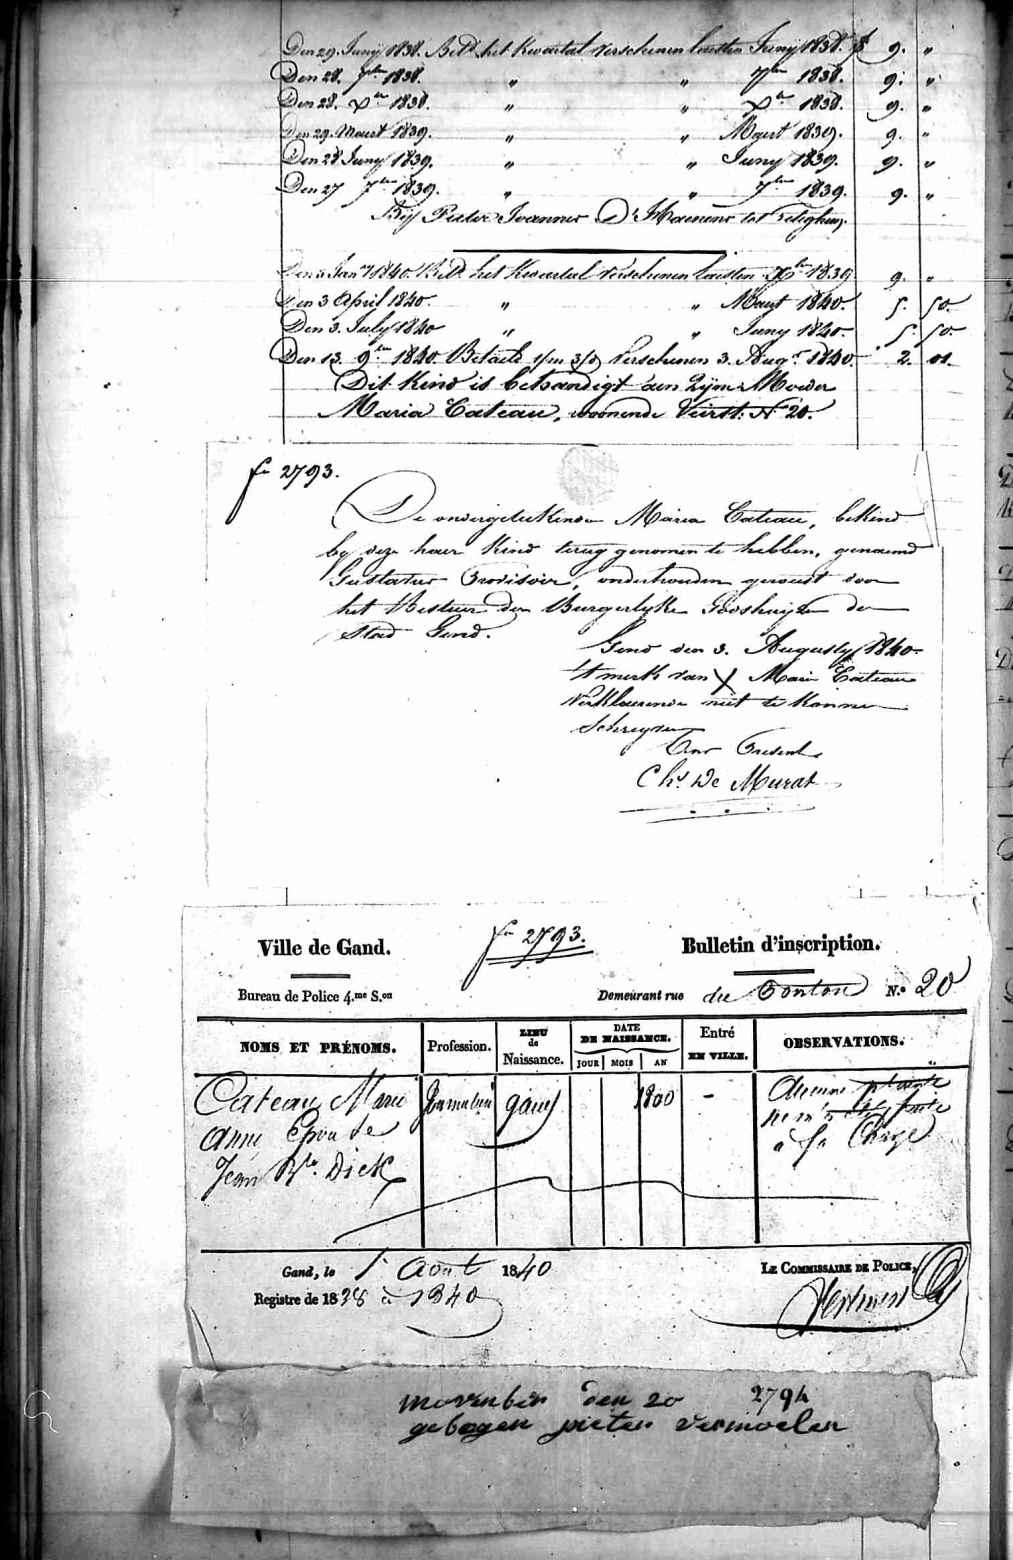 Den 29 Junij 1838. Betd. het Kwartal verschenen laatsten Junij 1838. f 9. "
Den 28. 7ber 1838. " " 7ber 1838. 9. "
Den 28. Xber 1838. " " Xber 1838. 9. "
Den 29. Maert 1839. " " Maert 1839. 9. "
Den 28 Juny 1839. " " Juny 1839. 9. "
Den 27 7ber 1839. " " 7ber 1839. 9. "
Bij Pieter Joannes tot
Den 3 Jany 1840. Betd. het Kwartal verschenen laatsten Xber 1839 9. "
Den 3 April 1840. " " Maert 1840. 5. 50.
Den 3. July 1840 " " Juny 1840. 5. 50.
Den 13. 9ber 1840. Betaeld verschenen 3. Augt. 1840. 2. 01.
Dit Kind is behandigt aen zijne Moeder
Maria Cateau, woonende N 20.
fo 2793.
De ondergeteekende Maria Cateau, bekend
by deze haer Kind terug genomen te hebben, genaemd
Gustavus Provisoir, onderhouden geweest door
het Bestuer der Burgerlyke Godshuyzen der
Stad Gend.
Gend den 3. Augusty 1840.
't merk van X Marie Cateau
verklaerende niet te konnen
schryven
Ons Present
Chs. De Murat
Ville de Gand.
fo 2793.
Bulletin d'inscription.
Bureau de Police 4.me S.on
Demeurant rue du Tonton N.o 20
NOMS ET PRÉNOMS.
Profession.
LIEU de Naissance.
DATE DE NAISSANCE.
JOUR MOIS AN
Entré EN VILLE.
OBSERVATIONS.
Cateau Marie
Anne Epouse
Jean Bte. Dick
Journalière
gand
1800
-
Aucune plainte
ne m'a été faite
à sa Charge
Gand, le 1r Aout 1840
Registre de 1838 à 1840
LE COMMISSAIRE DE POLICE,
november den 20 2794
gebogen pieter vermoelen